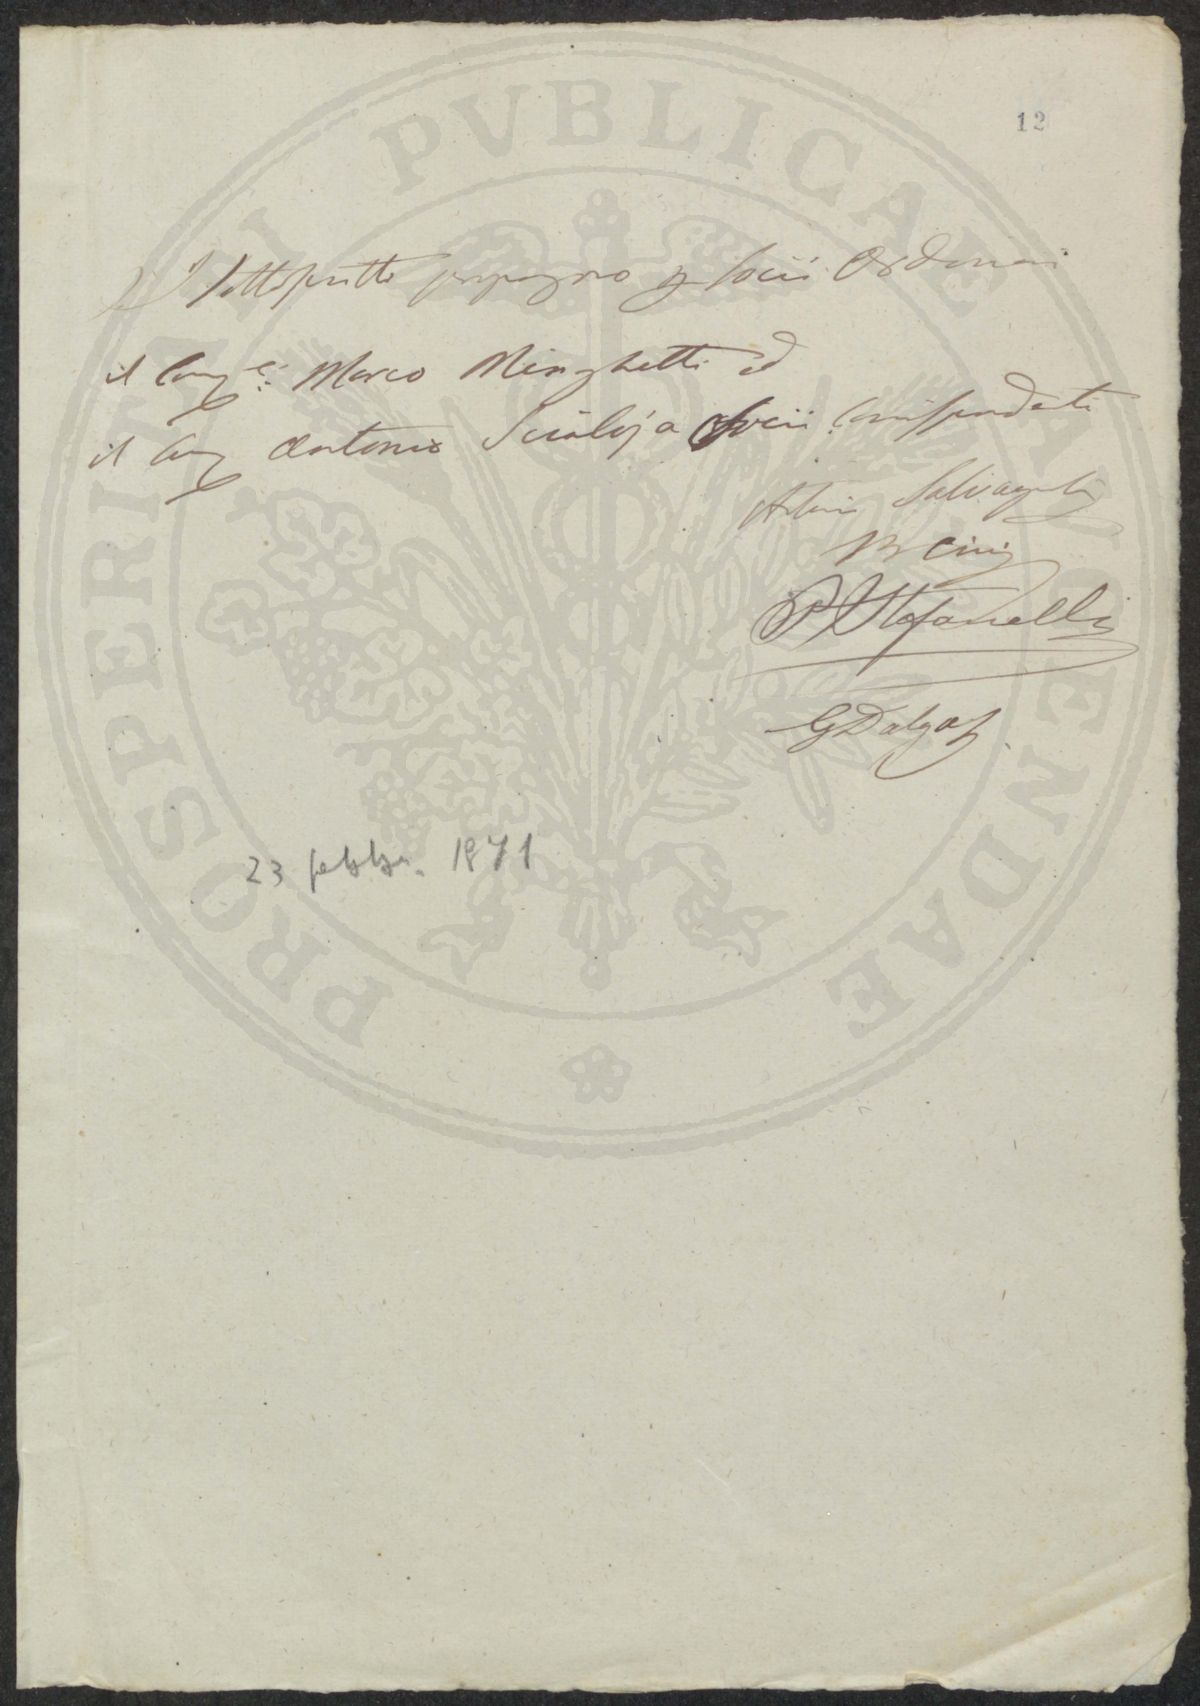 12
I sottoscritti propongono p Socii Ordinari
il Comm.e: Marco Minghetti ed
il Com Antonio Scialoja Socii Corrispondenti
Salvagnoli
B Cini
P Stefanelli
G Dalgas
23 febbr. 1871
PROSPERITATI PVBLICAE AVGENDAE